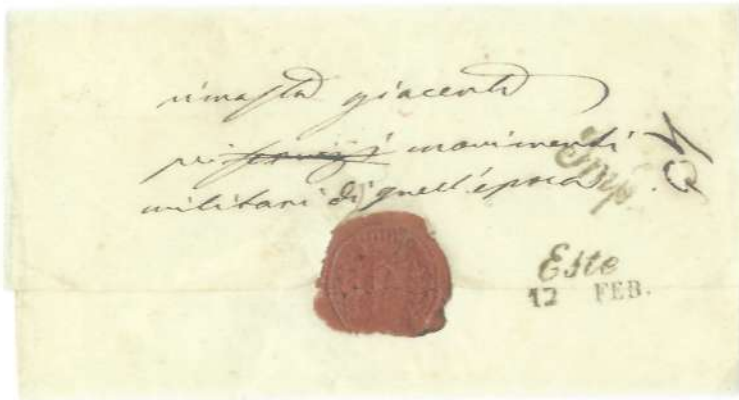 rimasta giacente
pei i movimenti
militari di quell'epoca
Este
12 FEB.